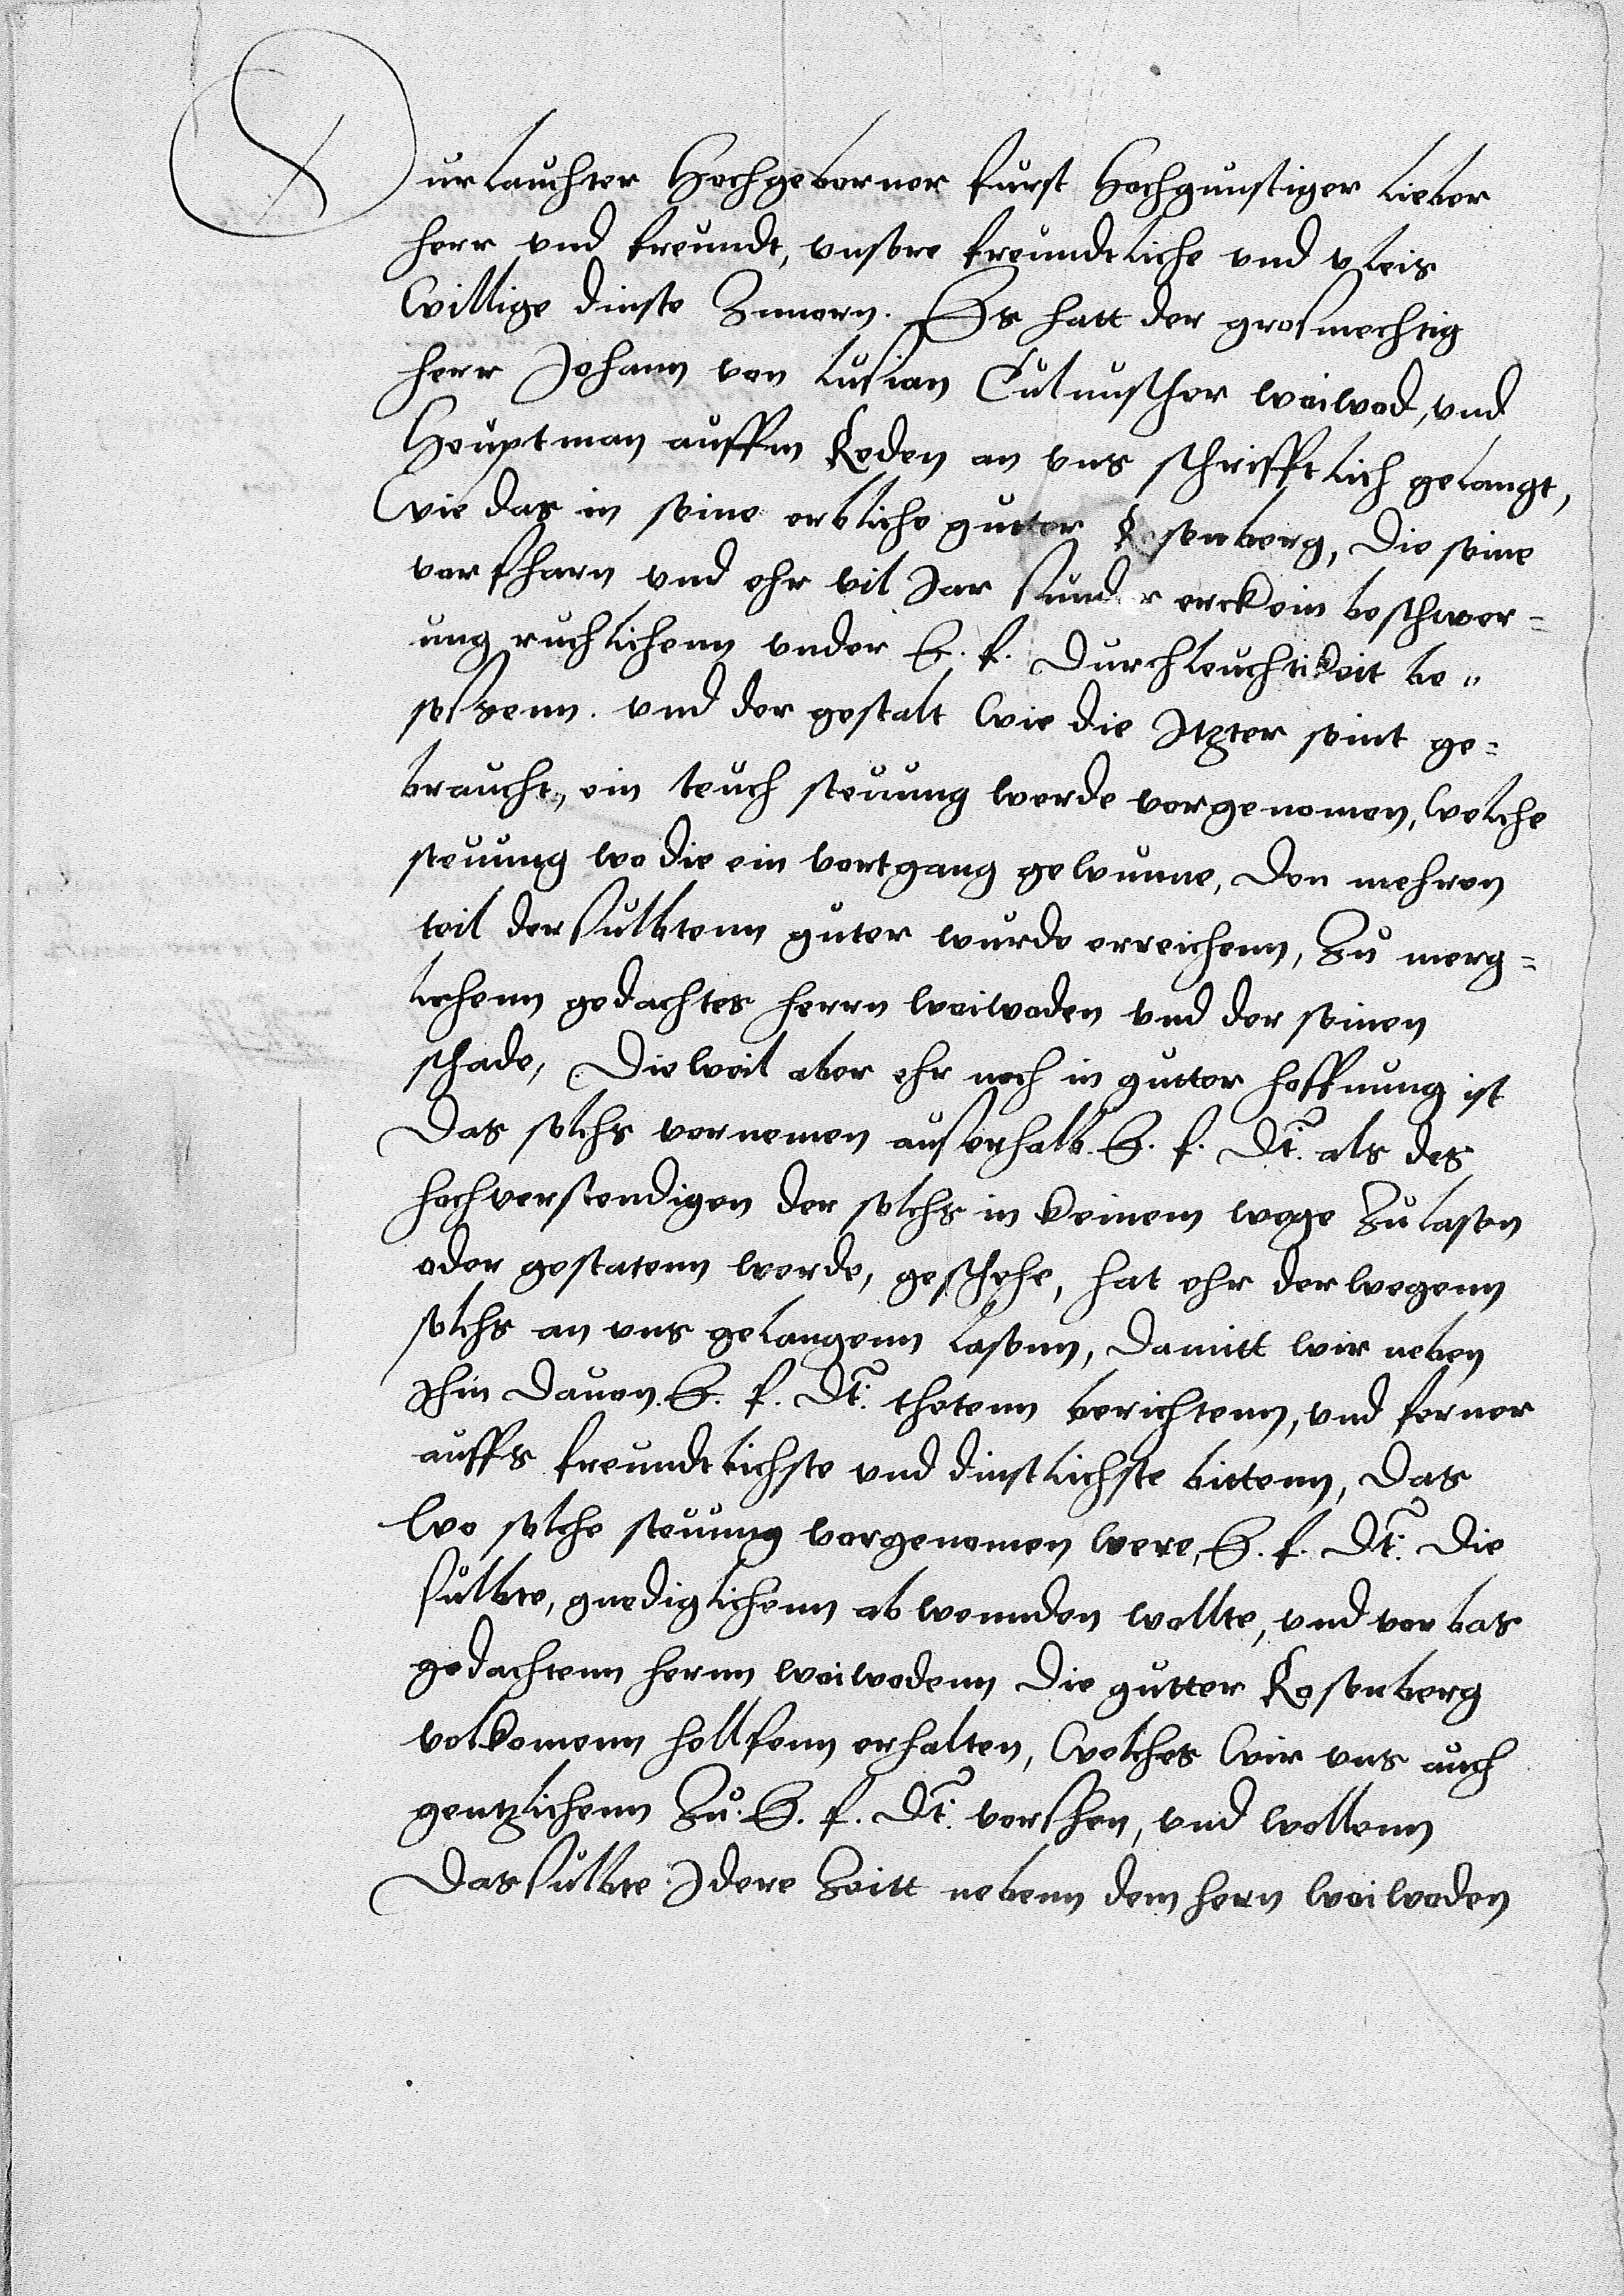 Durlauchter Hochgeborner furst Hochgunstiger lieber
herr vnd freundt, vnsere freundtliche vnd vleis
willige dinste Zuuorn. Es hatt der grosmechtig
herr Johann von lusian Culmischer woiwod, vnd
Heuptman auffm Reden an vns schrifftlich gelangt,
wie das in seine erbliche gutter Rosenberg, die seine
vorfharn vnd ehr vil Jar sunder erckein beschwer=
ung ruchlichenn vnder E. f. Durchleuchtikeit be=
sessenn. vnd der gestalt wie die Itzter seint ge=
braucht, ein teuch steuung werde vorgenomen, welche
steuung wo die ein vortgang gewunne, den mehren
teil der sulbtenn guter wurde erreichenn, Zu merg=
lichenn gedachtes herrn woiwoden vnd der seinen
schade, Dieweil aber ehr noch in gutter hoffnung ist
Das solchs vornemen ausserhalb E. f. Dt. als des
hochverstendigen der solchs in keinem wege Zulasen
oder gestatenn werde, geschehe, hat ehr derwegenn
solchs an vns gelangenn lasenn, Damitt wir neben
Jhm Dauon E. f. Dt. thetenn berichtenn, vnd ferner
auffs freundtlichste vnd dinstlichste bittenn, Das
wo solche steuung vorgenomen were, E. f. Dt. Die
sulbte, gnediglichenn abwennden wollte, vnd vorbas
gedachtenn hernn woiwodenn Die gutter Rosenberg
volkomenn hellfenn erhalten, welches wir vns auch
gentzlichenn Zu E. f. Dt. versehen, vnd wollenn
Das sulbte Jdere Zeitt nebenn dem hern woiwoden